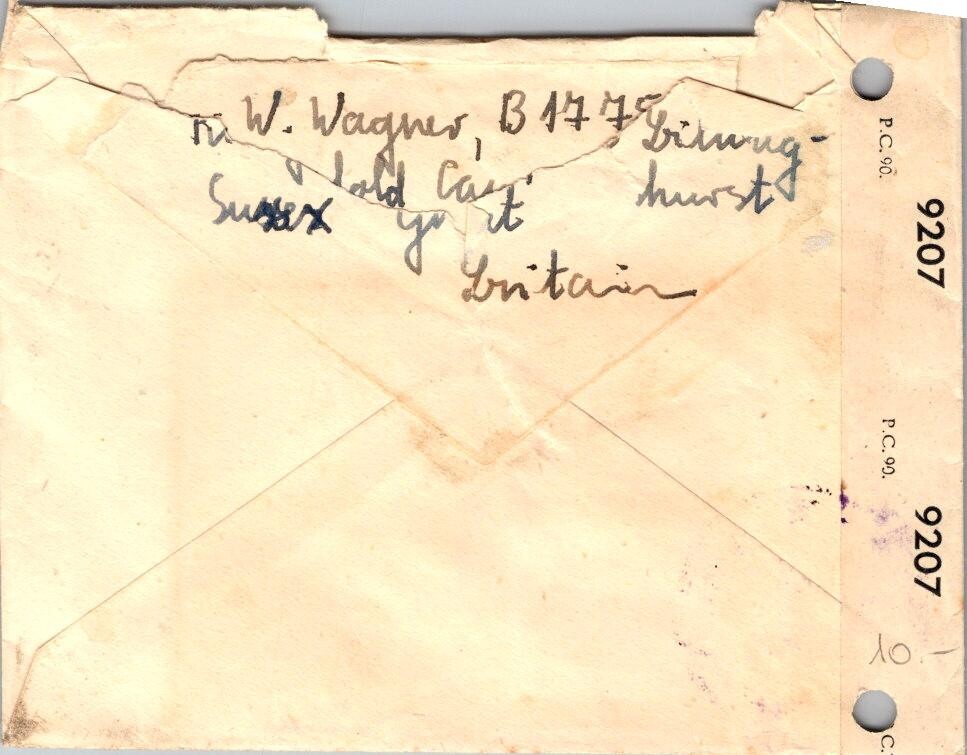 W. Wagner, B 1775
old hurst
Sussex
Britain
P.C. 90.
9207
P.C. 90.
9207
10.-